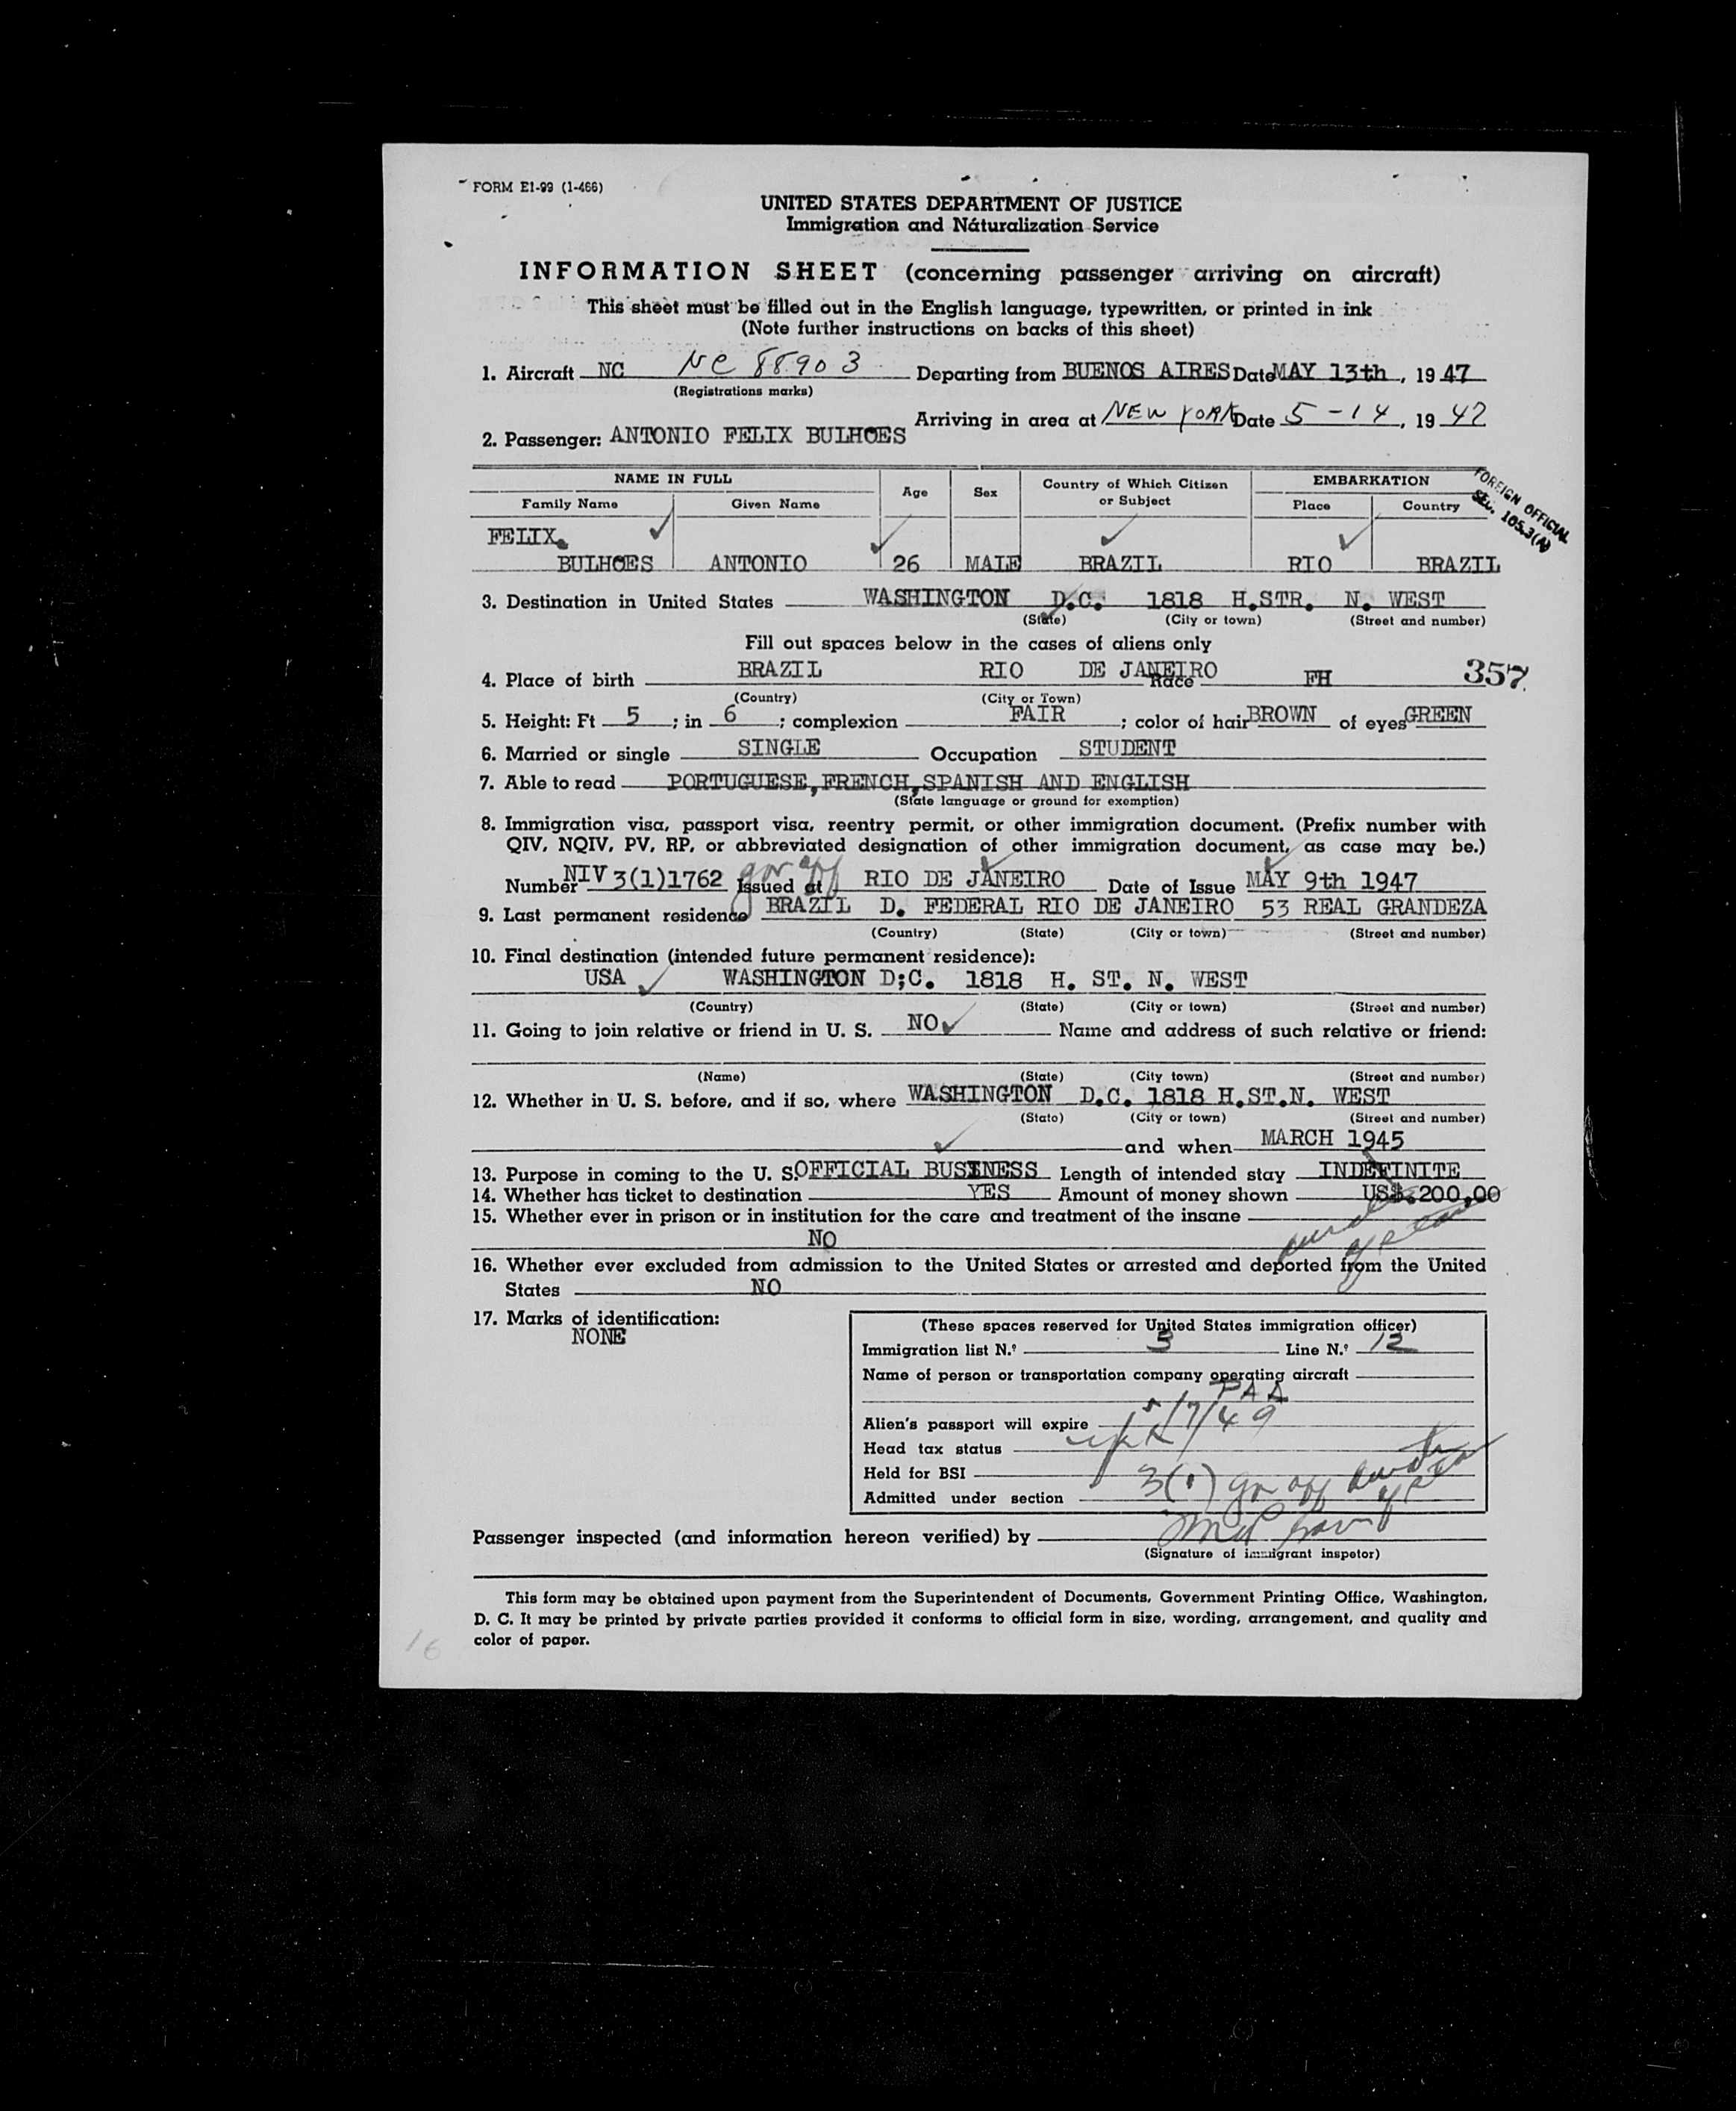 FORM E1-99 (1-466)
UNITED STATES DEPARTMENT OF JUSTICE
Immigration and Naturalization Service
INFORMATION SHEET (concerning passenger arriving on aircraft)
This sheet must be filled out in the English language, typewritten, or printed in ink
(Note further instructions on backs of this sheet)
1. Aircraft NC NC 88903 Departing from BUENOS AIRES Date MAY 13th, 19 47
(Registrations marks)
Arriving in area at NEW YORK Date 5-14, 19 47
2. Passenger: ANTONIO FELIX BULHOES
NAME IN FULL Age Sex Country of Which Citizen or Subject EMBARKATION
Family Name Given Name Place Country
FOREIGN OFFICIAL
SEC. 105.3(A)
FELIX
BULHOES ANTONIO 26 MALE BRAZIL RIO BRAZIL
3. Destination in United States WASHINGTON D.C. 1818 H.STR. N. WEST
(State) (City or town) (Street and number)
Fill out spaces below in the cases of aliens only
4. Place of birth BRAZIL RIO DE JANEIRO Race FH 357
(Country) (City or Town)
5. Height: Ft 5 ; in 6 ; complexion FAIR ; color of hair BROWN of eyes GREEN
6. Married or single SINGLE Occupation STUDENT
7. Able to read PORTUGUESE,FRENCH,SPANISH AND ENGLISH
(State language or ground for exemption)
8. Immigration visa, passport visa, reentry permit, or other immigration document. (Prefix number with
QIV, NQIV, PV, RP, or abbreviated designation of other immigration document, as case may be.)
Number NIV 3(1)1762 gov off Issued at RIO DE JANEIRO Date of Issue MAY 9th 1947
9. Last permanent residence BRAZIL D. FEDERAL RIO DE JANEIRO 53 REAL GRANDEZA
(Country) (State) (City or town) (Street and number)
10. Final destination (intended future permanent residence):
USA WASHINGTON D;C. 1818 H. ST. N. WEST
(Country) (State) (City or town) (Street and number)
11. Going to join relative or friend in U. S. NO Name and address of such relative or friend:
(Name) (State) (City town) (Street and number)
12. Whether in U. S. before, and if so, where WASHINGTON D.C. 1818 H.ST.N. WEST
(Stato) (City or town) (Street and number)
and when MARCH 1945
13. Purpose in coming to the U. S. OFFICIAL BUSINESS Length of intended stay INDEFINITE
14. Whether has ticket to destination YES Amount of money shown US$.200,00
15. Whether ever in prison or in institution for the care and treatment of the insane
NO
16. Whether ever excluded from admission to the United States or arrested and deported from the United
States NO
17. Marks of identification:
NONE
(These spaces reserved for United States immigration officer)
Immigration list N.º 3 Line N.º 12
Name of person or transportation company operating aircraft
PAA
Alien's passport will expire 5/7/49
Head tax status
Held for BSI
Admitted under section 3(1) gov off
Passenger inspected (and information hereon verified) by
(Signature of immigrant inspetor)
This form may be obtained upon payment from the Superintendent of Documents, Government Printing Office, Washington,
D. C. It may be printed by private parties provided it conforms to official form in size, wording, arrangement, and quality and
color of paper.
16